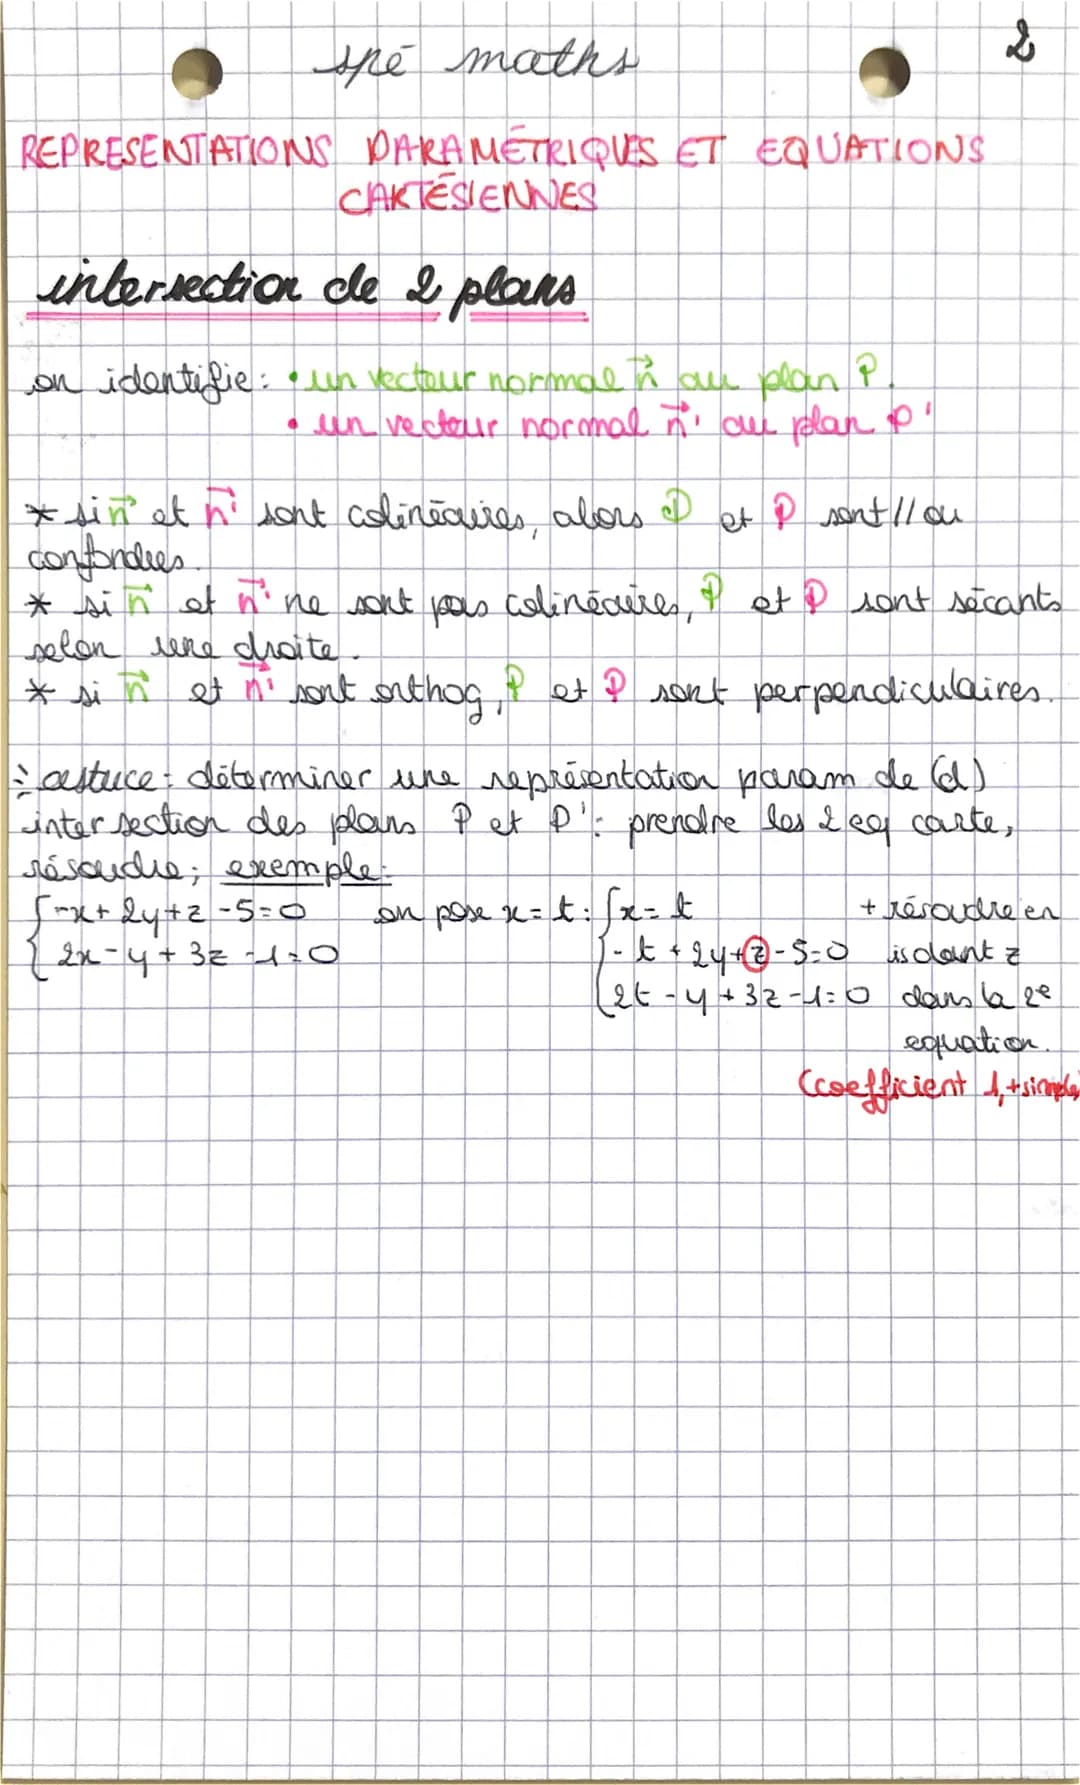 2
spé maths
REPRESENTATIONS PARAMÉTRIQUES ET EQUATIONS
CARTÉSIENNES
intersection de 2 plans
on identifie : • un vecteur normal n⃗ au plan P.
• un vecteur normal n⃗' au plan P'
* si n⃗ et n⃗' sont colinéaires, alors P et P sont // ou
confondues.
* si n⃗ et n⃗' ne sont pas colinéaires, P et P sont sécants
selon une droite.
* si n⃗ et n⃗' sont orthog, P et P sont perpendiculaires.
astuce : déterminer une représentation param de (d)
intersection des plans P et P' : prendre les 2 eq carte,
résoudre ; exemple :
{ -x + 2y + z - 5 = 0 on pose x = t : { x = t + résoudre en
2x - y + 3z - 1 = 0 - t + 2y + z - 5 = 0 isolant z
2t - y + 3z - 1 = 0 dans la 2e
equation.
(coefficient 1, + simple)